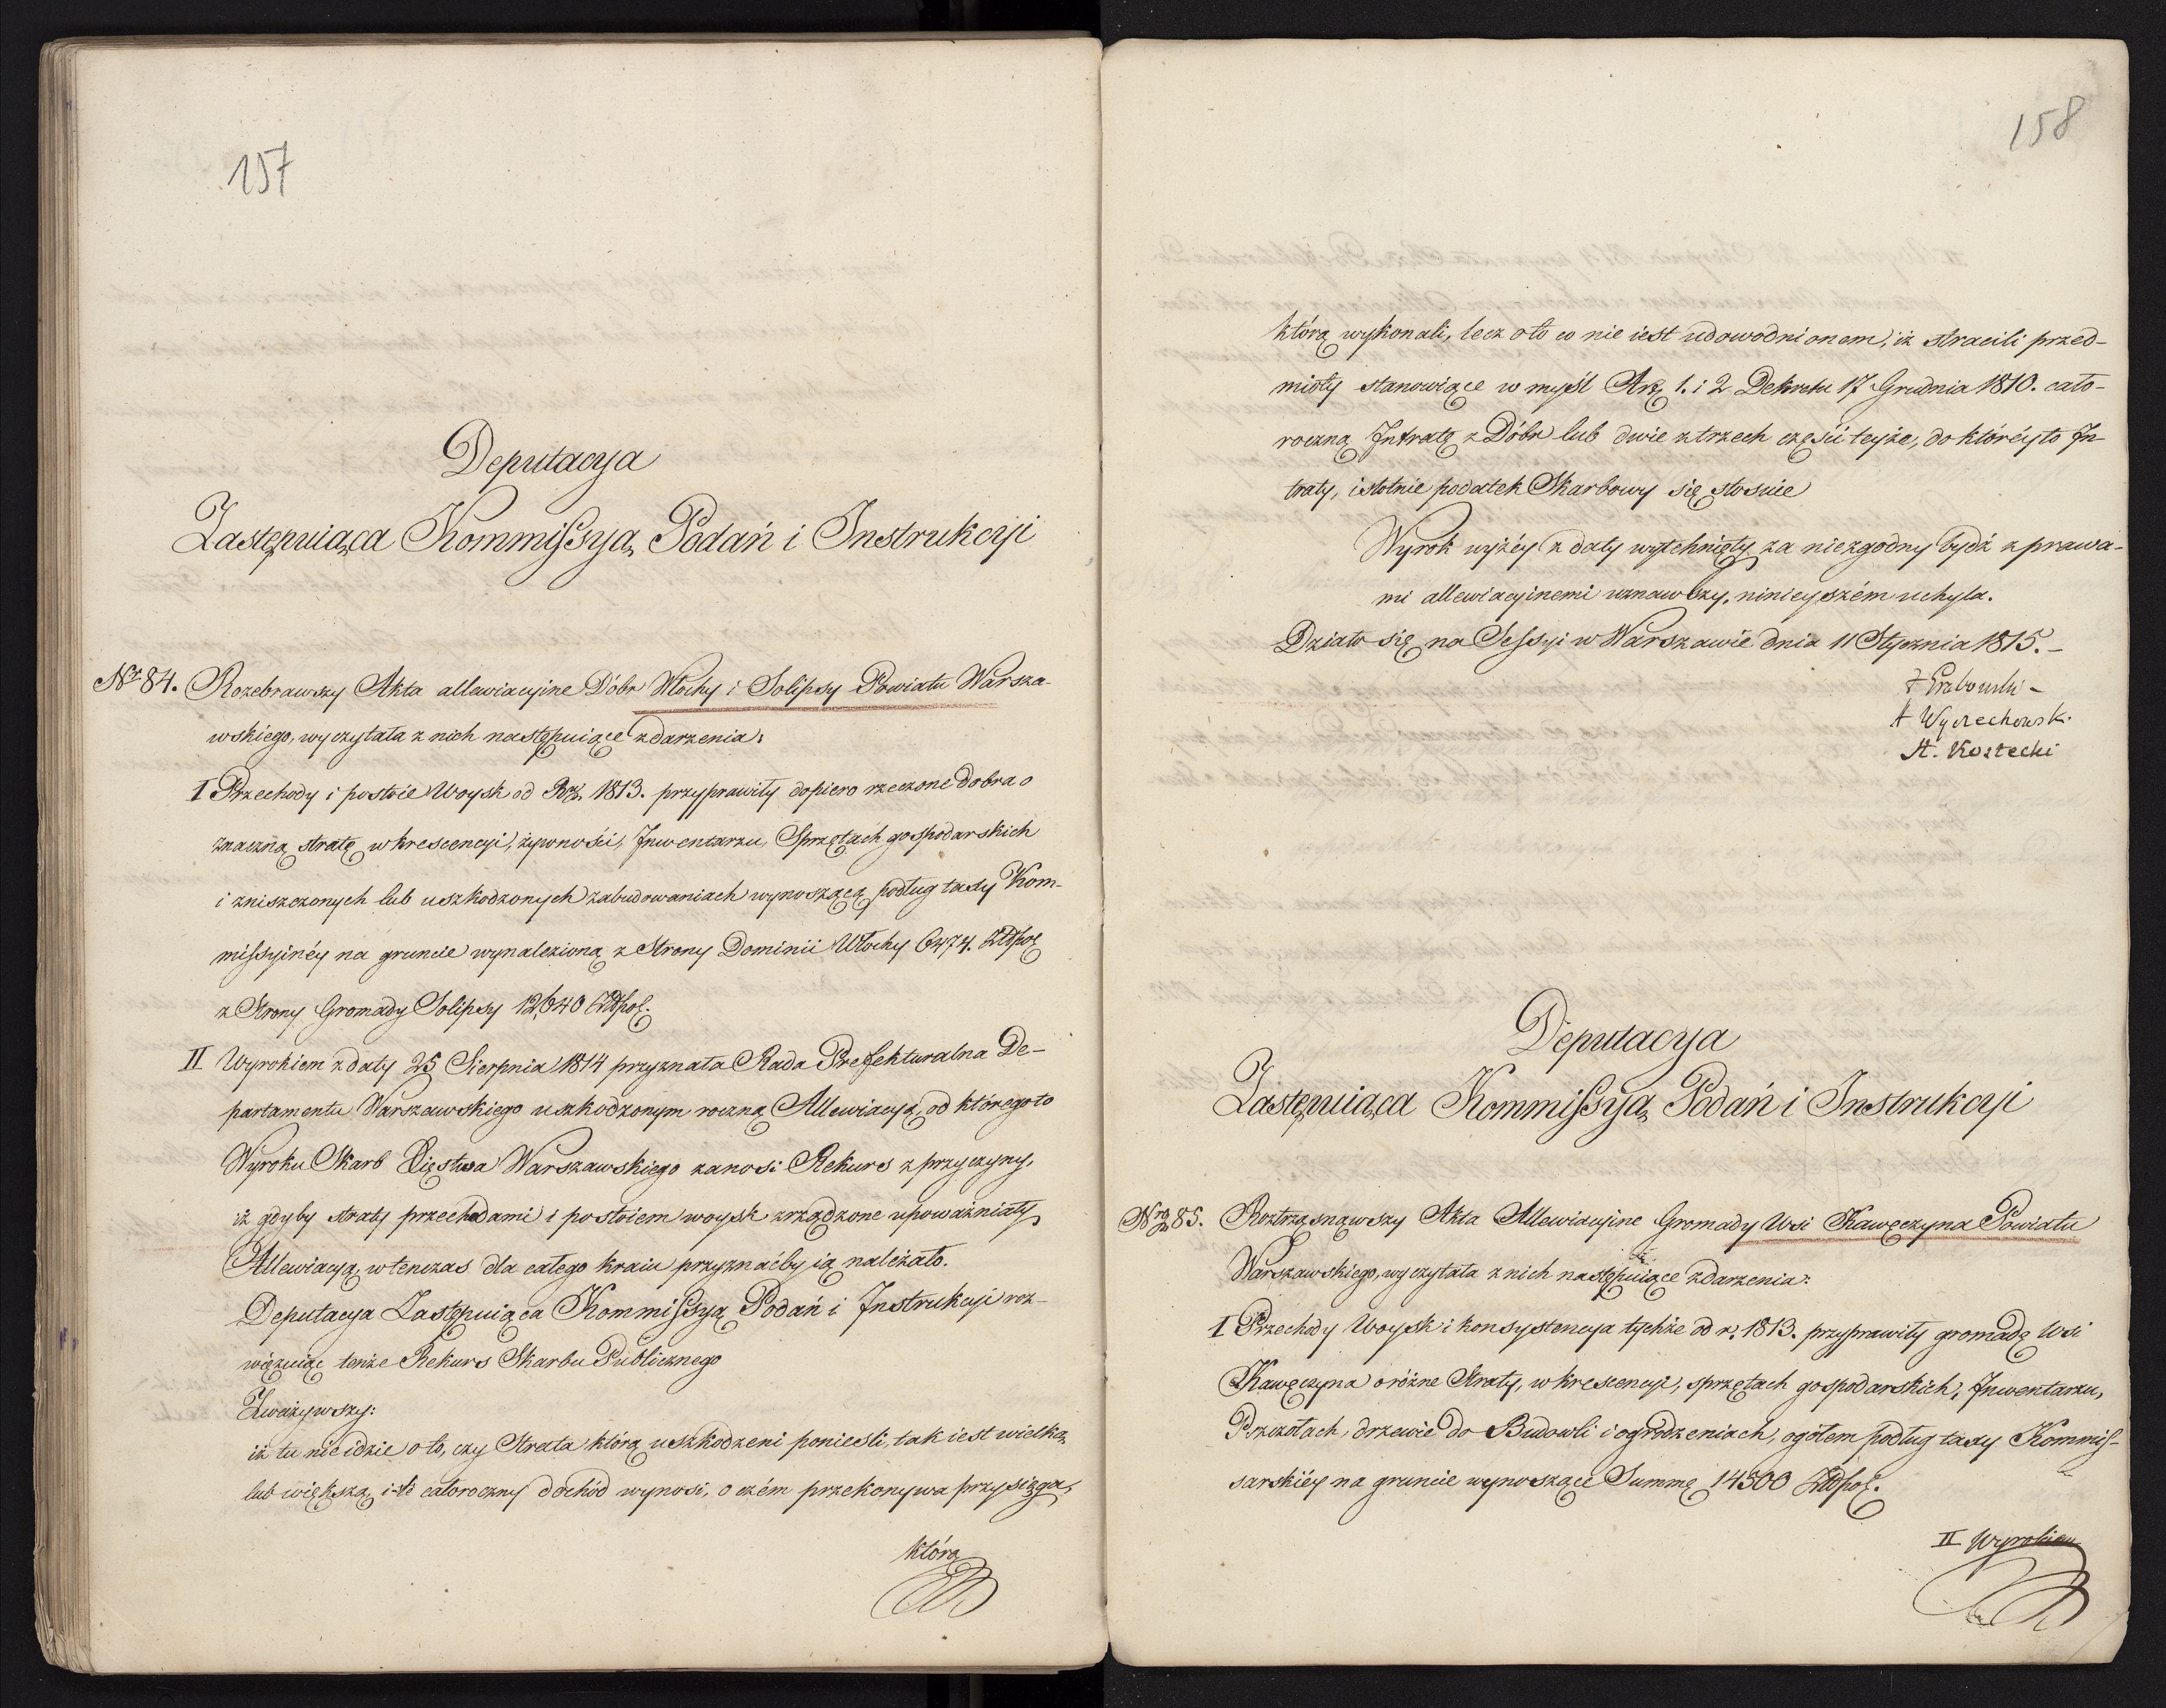 157
Deputacya
Zastępuiąca Kommissyą Podań i Instrukcyi
Nr 84. Rozebrawszy Akta allewiacyine Dóbr Włochy i Solipsy Powiatu Warsza-
wskiego, wyczytała z nich następuiące zdarzenia:
I Przechody i postoie Woysk od 1813. przyprawiły dopiero rzeczone dobra o
znaczną stratę w krescencyi, żywności, Inwentarzu, Sprzętach gospodarskich
i zniszczonych lub uszkodzonych zabudowaniach wynoszącą podług taxy Kom-
missyinéy na gruncie wynalezioną z Strony Dominii Włochy 6474. Złpol
z Strony Gromady Solipsy 12,640 Złpol.
II Wyrokiem z daty 25 Sierpnia 1814 przyznała Rada Prefekturalna De-
partamentu Warszawskiego uszkodzonym roczną Allewiacyą, od którego to
Wyroku Skarb Xięstwa Warszawskiego zanosi Rekurs z przyczyny,
iż gdyby straty przechodami i postoiem woysk zrządzone upoważniały
Allewiacyą, wtenczas dla całego kraiu przyznaćby ią należało.
Deputacya Zastępuiąca Kommissyą Podań i Instrukcyi roz-
więzuiąc tenże Rekurs Skarbu Publicznego
Zważywszy:
iż tu nie idzie o to, czy Strata którą uszkodzeni ponieśli, tak iest wielka
lub większa, iak całoroczny dochód wynosi, o czém przekonywa przysięga,
którą
158
którą wykonali, lecz o to co nie iest udowodnionem, iż stracili przed-
mioty stanowiące w myśl Art. 1. i 2 Dekretu 17 Grudnia 1810. cało-
roczną Intratę z Dóbr lub dwie z trzech części teyże, do któréy to In-
traty, istotnie podatek Skarbowy się stosuie
Wyrok wyżéy z daty wytchnięty za niezgodny bydź z prawa-
mi allewiacyinemi uznawszy, ninieyszém uchyla.
Działo się na Sessyi w Warszawie dnia 11 Stycznia 1815. -
Grabowski -
A Wyczechowsk.
A. Kostecki
Deputacya
Zastępuiąca Kommissyą Podań i Instrukcyi
Nro 85. Roztrząsnąwszy Akta Allewiacyine Gromady Wsi Kawęczyna Powiatu
Warszawskiego, wyczytała z nich następuiące zdarzenia:
I Przechody Woysk i konsystencya tychże od r. 1813. przyprawiły gromadę Wsi
Kawęczyna o różne Straty, w krescencyi, sprzętach gospodarskich, Inwentarzu,
Pszczołach, drzewie do Budowli i ogrodzeniach, ogółem podług taxy Kommis-
sarskiéy na gruncie wynoszące Summę 14300 Złpol.
II Wyrokiem